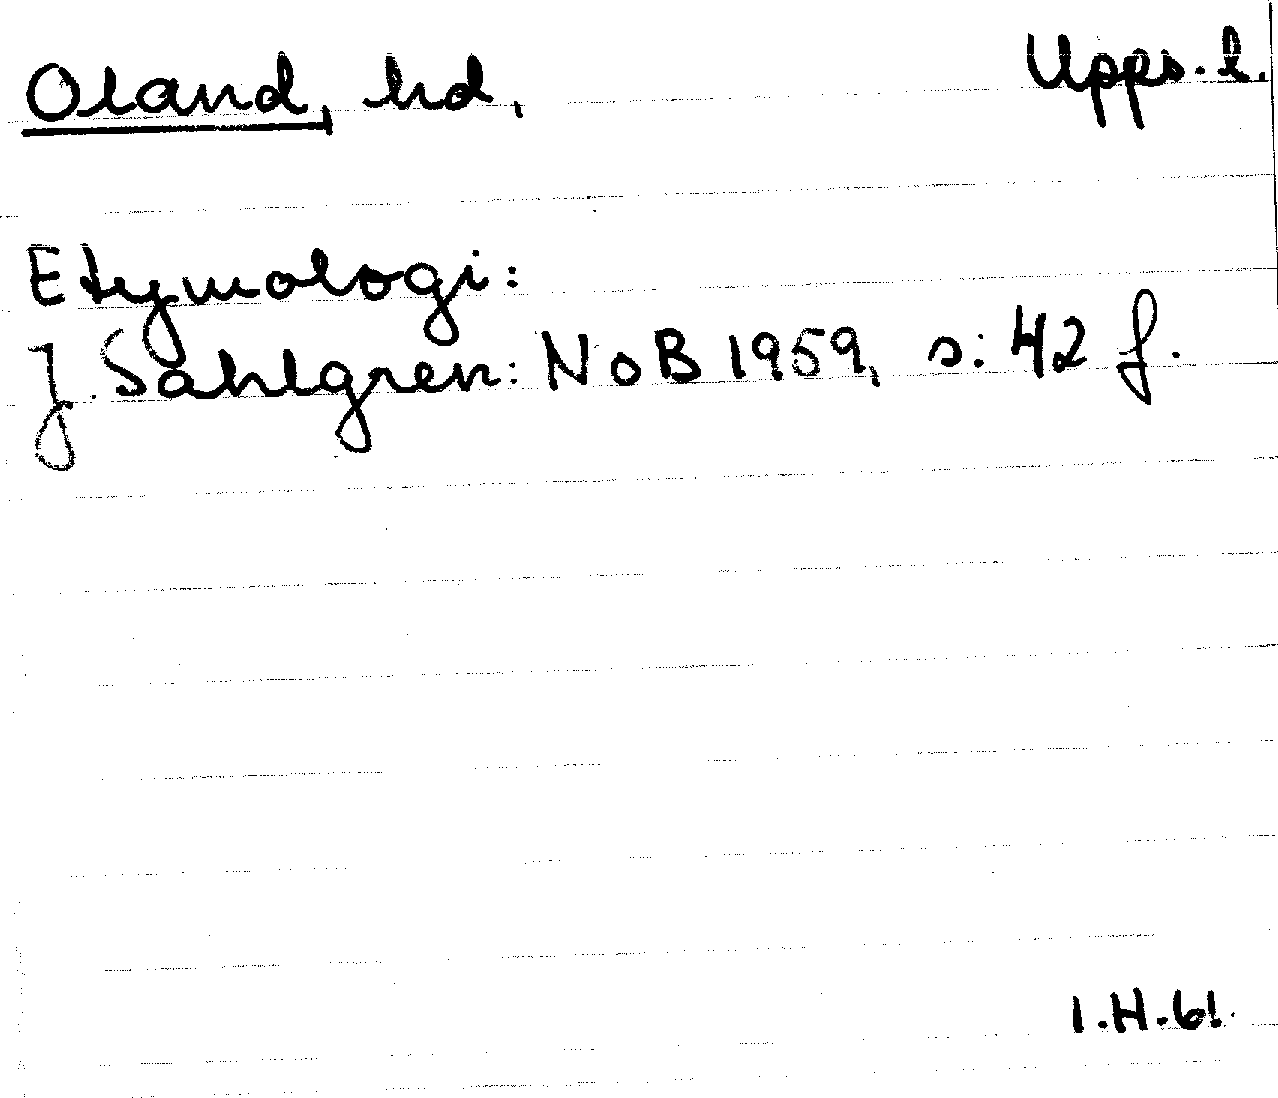 Oland, hd, Upps. l.
Etymologi:
J. Sahlgren: NoB 1959, s: 42 f.
I.H.61.